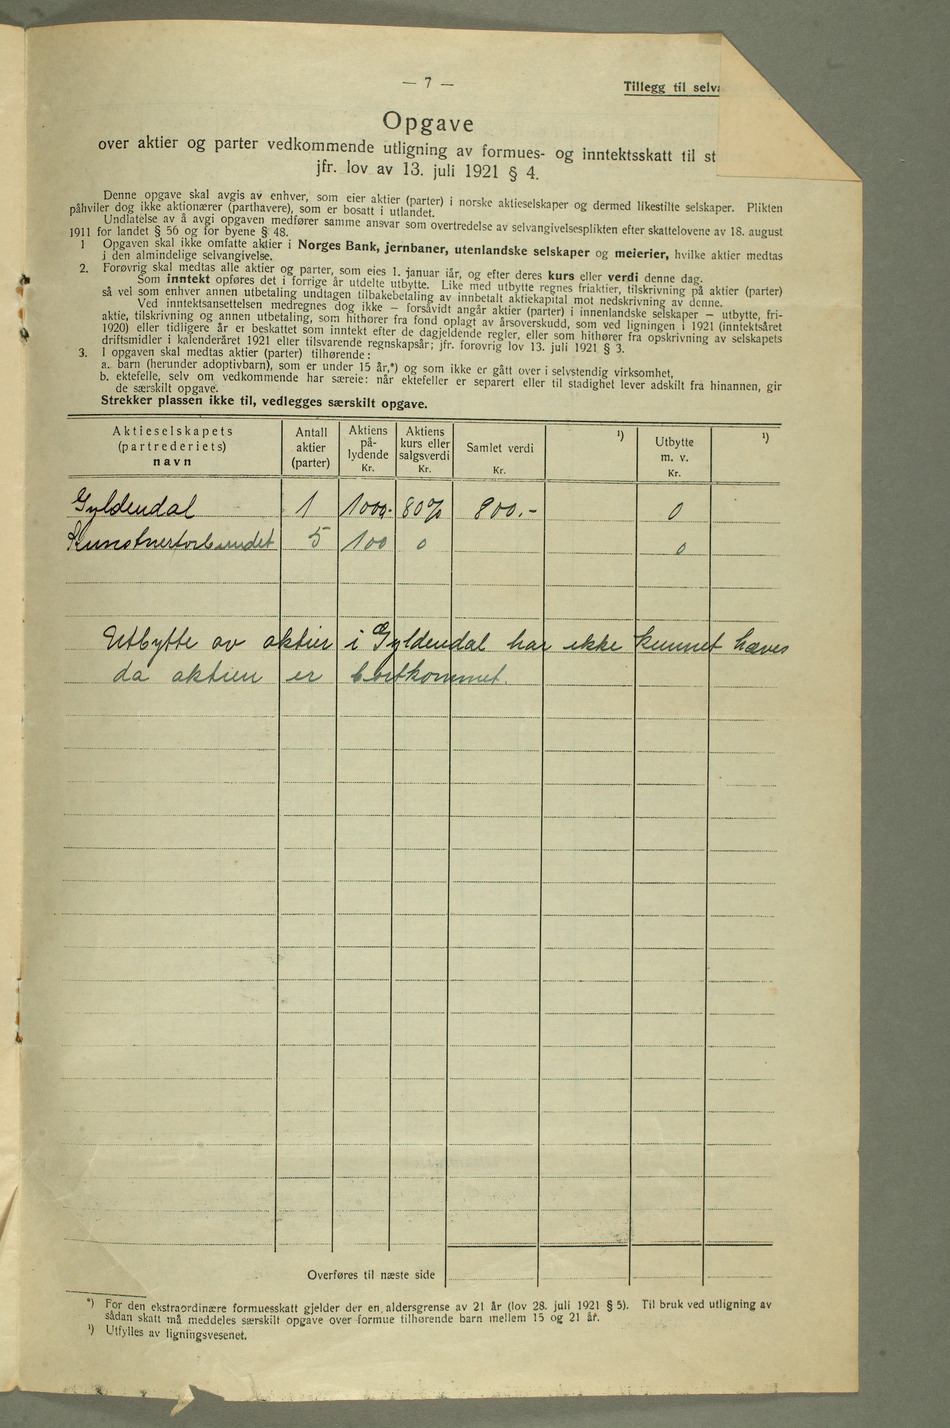 — 7 —
Tillegg til selv
Opgave
over aktier og parter vedkommende utligning av formues- og inntektsskatt til st
jfr. lov av 13. juli 1921 § 4.
Denne opgave skal avgis av enhver, som eier aktier (parter) i norske aktieselskaper og dermed likestilte selskaper. Plikten
påhviler dog ikke aktionærer (parthavere), som er bosatt i utlandet.
Undlatelse av å avgi opgaven medfører samme ansvar som overtredelse av selvangivelsesplikten efter skattelovene av 18. august
1911 for landet § 56 og for byene § 48.
1 Opgaven skal ikke omfatte aktier i Norges Bank, jernbaner, utenlandske selskaper og meierier, hvilke aktier medtas
i den almindelige selvangivelse.
2. Forøvrig skal medtas alle aktier og parter, som eies 1. januar iår, og efter deres kurs eller verdi denne dag.
Som inntekt opføres det i forrige år utdelte utbytte. Like med utbytte regnes friaktier, tilskrivning på aktier (parter)
så vel som enhver annen utbetaling undtagen tilbakebetaling av innbetalt aktiekapital mot nedskrivning av denne.
Ved inntektsansettelsen medregnes dog ikke — forsåvidt angår aktier (parter) i innenlandske selskaper — utbytte, fri-
aktie, tilskrivning og annen utbetaling, som hithører fra fond oplagt av årsoverskudd, som ved ligningen i 1921 (inntektsåret
1920) eller tidligere år er beskattet som inntekt efter de dagjeldende regler, eller som hithører fra opskrivning av selskapets
driftsmidler i kalenderåret 1921 eller tilsvarende regnskapsår; jfr. forøvrig lov 13. juli 1921 § 3.
3. I opgaven skal medtas aktier (parter) tilhørende:
a. barn (herunder adoptivbarn), som er under 15 år,*) og som ikke er gått over i selvstendig virksomhet,
b. ektefelle, selv om vedkommende har særeie: når ektefeller er separert eller til stadighet lever adskilt fra hinannen, gir
de særskilt opgave.
Strekker plassen ikke til, vedlegges særskilt opgave.
Aktieselskapets (partrederiets) navn Antall aktier (parter) Aktiens på-lydende Kr. Aktiens kurs eller salgsverdi Kr. Samlet verdi Kr. ¹) Utbytte m. v. Kr. ¹)
Gyldendal 1 1000.- 80% 800.- 0
Kunstnerforbundet 5 100 0 0
Utbytte av aktier i Gyldendal har ikke kunnet hæves
da aktien er bortkommet.
Overføres til næste side
*) For den ekstraordinære formuesskatt gjelder der en aldersgrense av 21 år (lov 28. juli 1921 § 5). Til bruk ved utligning av
sådan skatt må meddeles særskilt opgave over formue tilhørende barn mellem 15 og 21 år.
¹) Utfylles av ligningsvesenet.